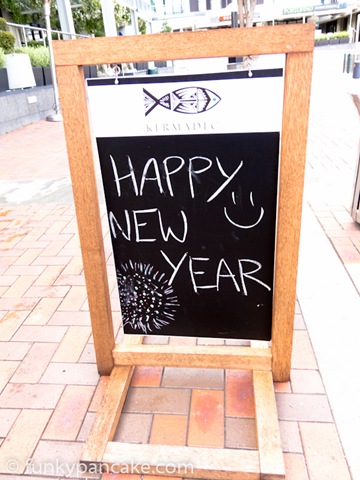 KERMADEC
HAPPY
NEW
YEAR
© funkypancake.com